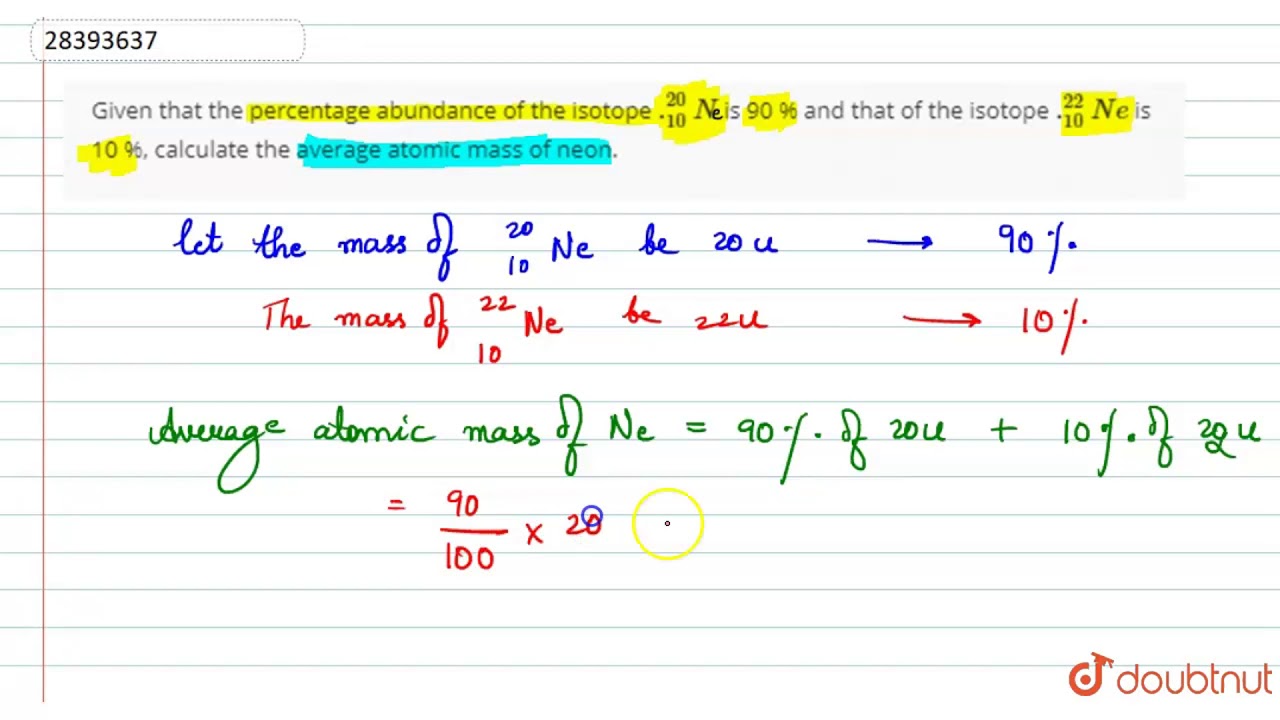 28393637
Given that the percentage abundance of the isotope .²⁰₁₀ Ne is 90 % and that of the isotope .²²₁₀ Ne is
10 %, calculate the average atomic mass of neon.
let the mass of ²⁰₁₀ Ne be 20 u → 90 %.
The mass of ²²₁₀ Ne be 22u → 10 %.
Average atomic mass of Ne = 90 %. of 20u + 10 %. of 22 u
= 90/100 × 20
doubtnut